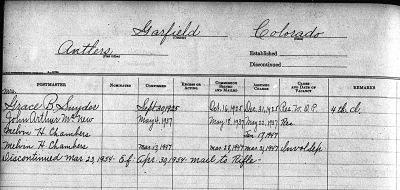 Garfield Colorado
(County) (State)
Antlers
(Post Office)
Established
Discontinued
POSTMASTER NOMINATED CONFIRMED RECESS OR ACTING COMMISSION SIGNED AND MAILED ASSUMED CHARGE CAUSE AND DATE OF VACANCY REMARKS
Mrs.
Grace B. Snyder Sept 20, 1925 Oct. 16, 1925 Dec. 31, 1925 Res. W. O. P. 4th cl.
John Arthur McNew May 4, 1937 May 18, 1937 May 22, 1937 Res
Melvin H. Chambers Jan 17, 1947
Melvin H. Chambers Mar. 13, 1947 Mar. 28, 1947 Mar. 31, 1947
Discontinued Mar 23, 1954 Ef: Apr. 30, 1954 mail to Rifle